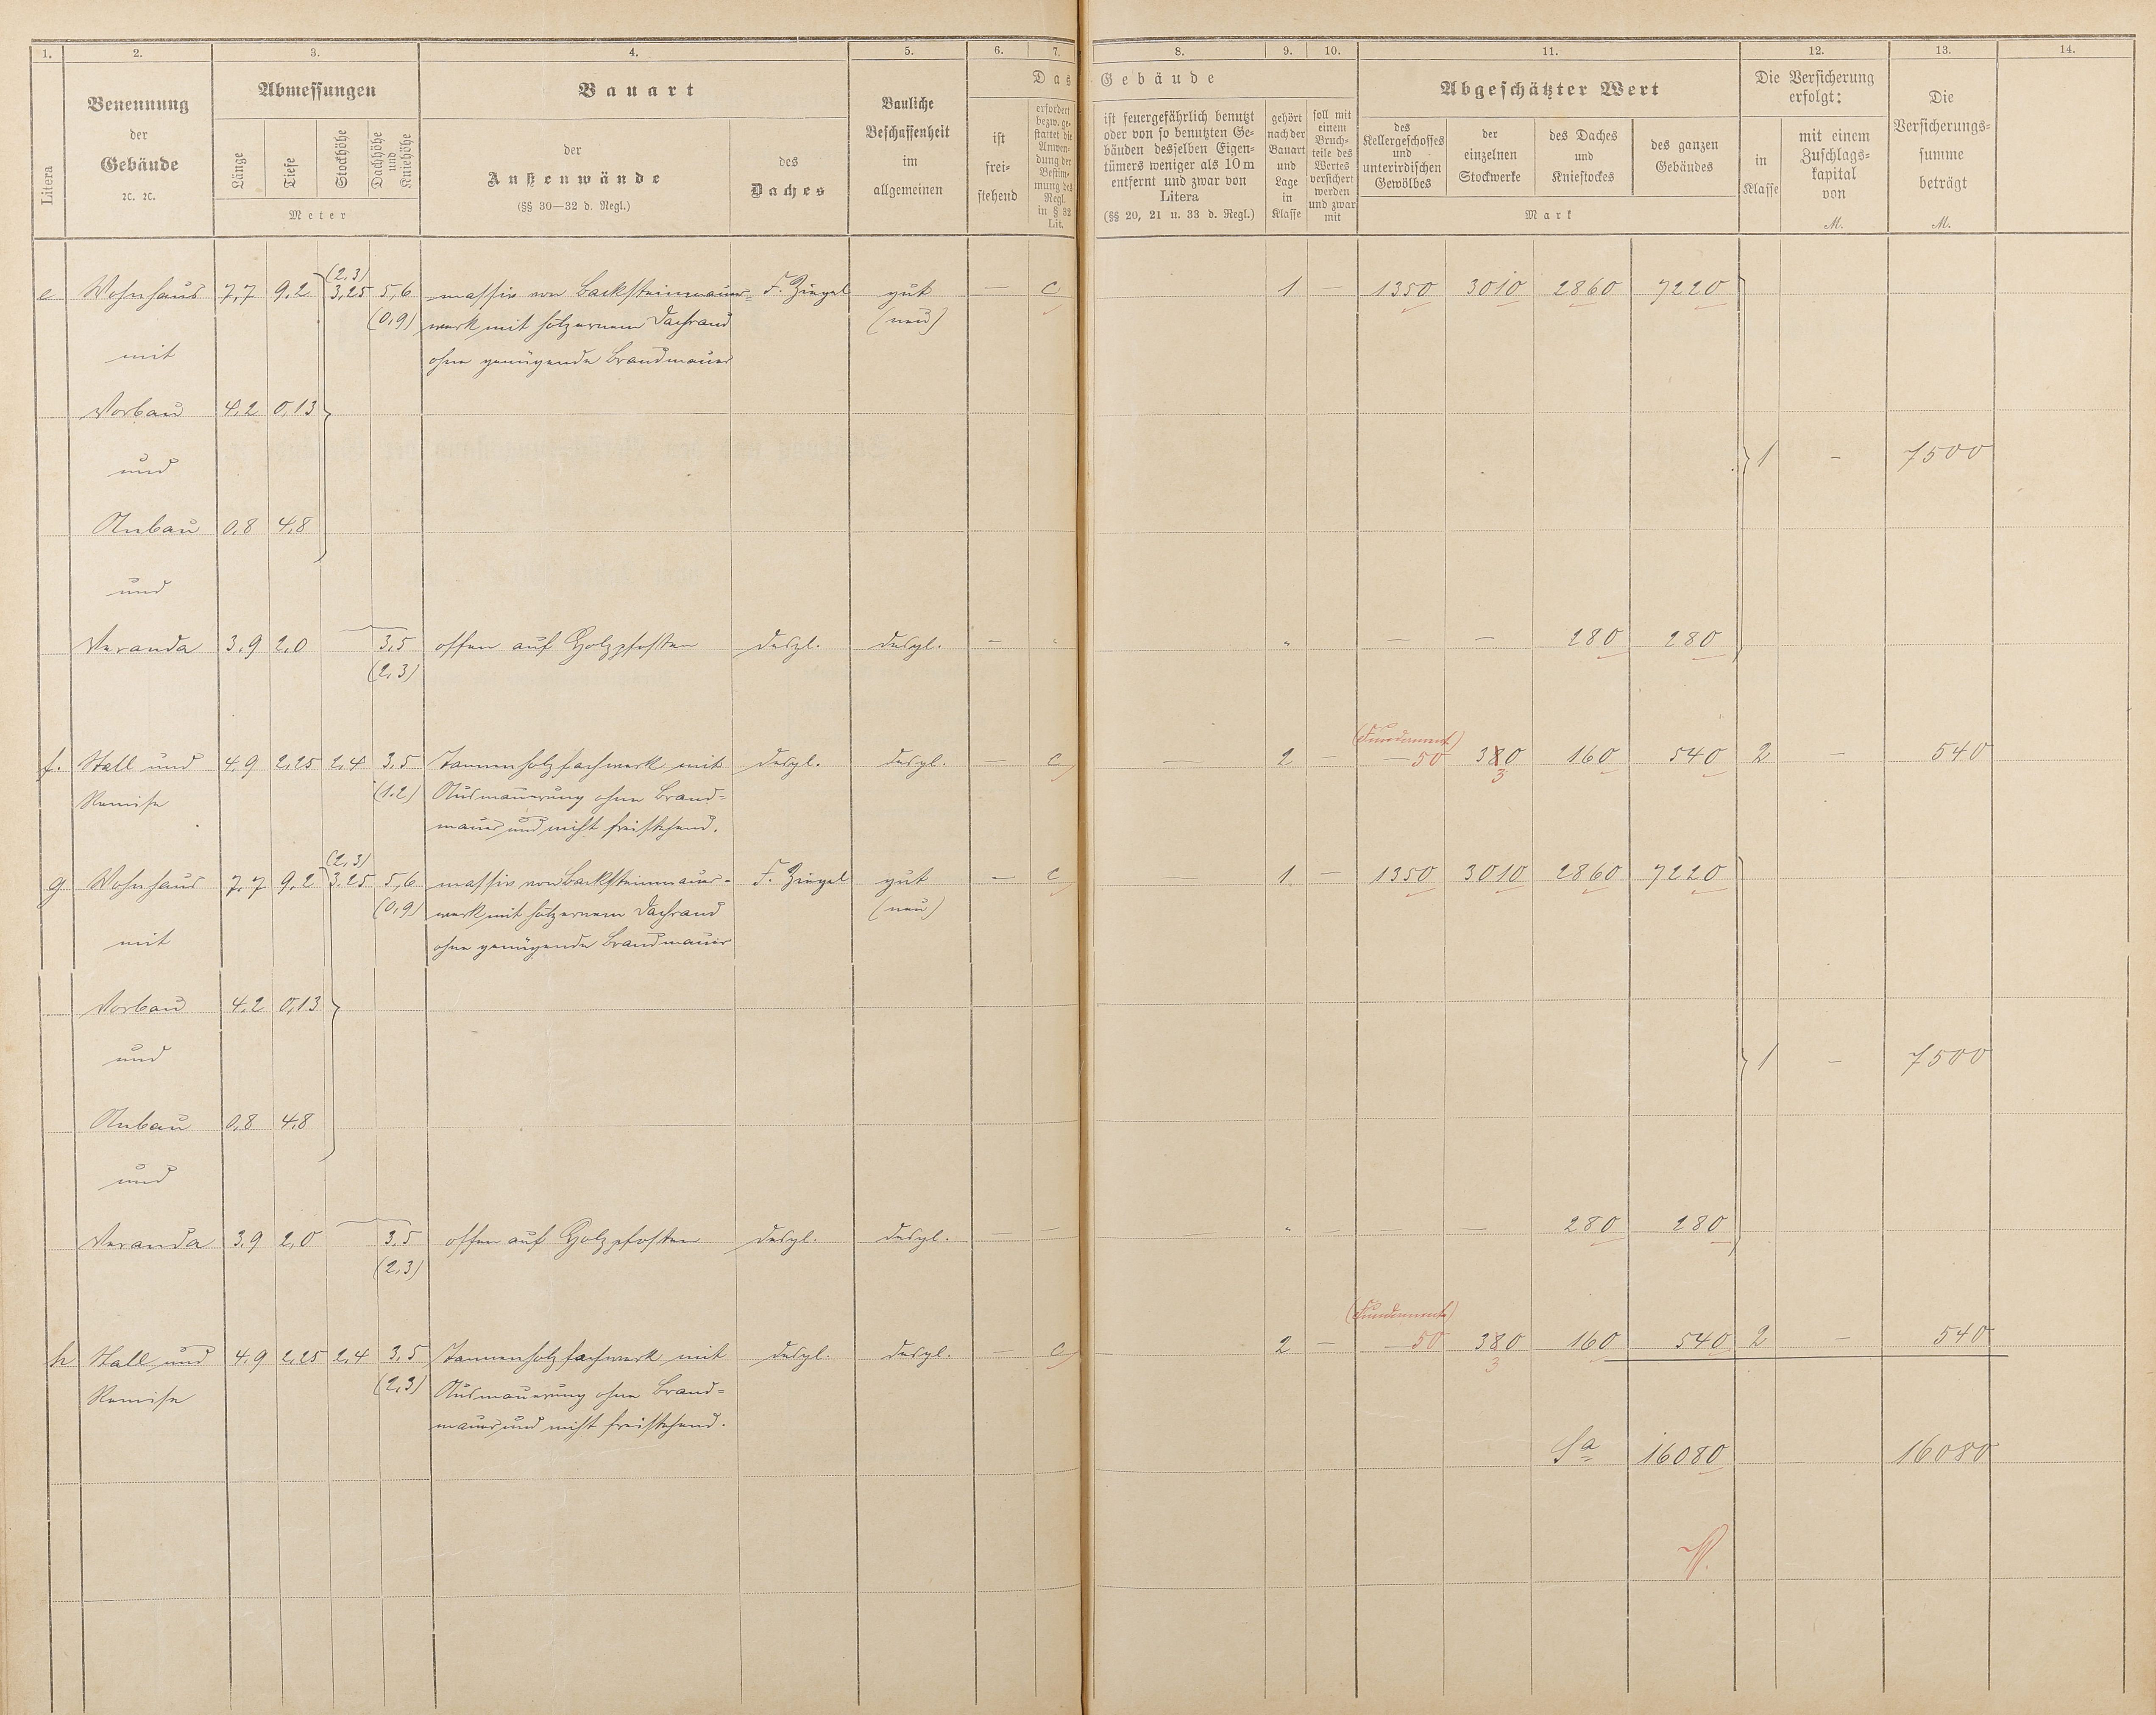 1. 2. 3. 4. 5. 6. 7. 8. 9. 10. 11. 12. 13. 14.
Litera
Benennung
der
Gebäude
ꝛc. ꝛc.
Abmessungen
Länge
Tiefe
Stockhöhe
Dachhöhe
und
Kniehöhe
Meter
Bauart
der
Außenwände
(§§ 30—32 d. Regl.)
des
Daches
Bauliche
Beschaffenheit
im
allgemeinen
Das Gebäude
ist
frei-
stehend
erfordert
bezw. ge-
stattet die
Anwen-
dung der
Bestim-
mung des
Regl.
in § 32
Lit.
ist feuergefährlich benutzt
oder von so benutzten Ge-
bäuden desselben Eigen-
tümers weniger als 10 m
entfernt und zwar von
Litera
(§§ 20, 21 u. 33 d. Regl.)
gehört
nach der
Bauart
und
Lage
in
Klasse
soll mit
einem
Bruch-
teile des
Wertes
versichert
werden
und zwar
mit
Abgeschätzter Wert
des
Kellergeschosses
und
unterirdischen
Gewölbes
der
einzelnen
Stockwerke
des Daches
und
Kniestockes
des ganzen
Gebäudes
Mark
Die Versicherung
erfolgt:
in
Klasse
mit einem
Zuschlags-
kapital
von
M.
Die
Versicherungs-
summe
beträgt
M.
(2,3)
e Wohnhaus 7,7 9,2 3,25 5,6 massiv von Backsteinmauer- F. Ziegel gut — c 1 — 1350 3010 2860 7220
(0,9) werk mit hölzernem Dachrand (neu)
mit ohne genügende Brandmauer
Vorbau 4,2 0,13
und 1 — 7500
Anbau 0,8 4,8
und
Veranda 3,9 2,0 3,5 offen auf Holzpfosten desgl. desgl. — " " — — 280 280
(2,3)
(Fundament)
f. Stall und 4,9 2,25 2,4 3,5 Tannenholzfachwerk mit desgl. desgl. — c — 2 — 50 380 160 540 2 — 540
3
Remise (1,2) Ausmauerung ohne Brand-
mauer und nicht freistehend.
(2,3)
g Wohnhaus 7,7 9,2 3,25 5,6 massiv von Backsteinmauer- F. Ziegel gut — c — 1 — 1350 3010 2860 7220
(0,9) werk mit hölzernem Dachrand (neu)
mit ohne genügende Brandmauer
Vorbau 4,2 0,13
und 1 — 7500
Anbau 0,8 4,8
und
Veranda 3,9 2,0 3,5 offen auf Holzpfosten desgl. desgl. — — " — — — 280 280
(2,3)
(Fundament)
h Stall und 4,9 2,25 2,4 3,5 Tannenholzfachwerk mit desgl. desgl. — c — 2 — 50 380 160 540 2 — 540
3
Remise (2,3) Ausmauerung ohne Brand-
mauer und nicht freistehend.
Sa 16080 16080